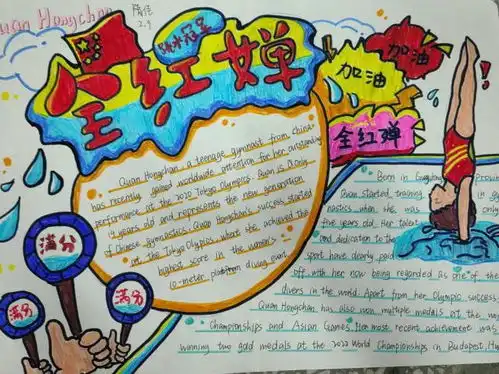 Quan Hongchan
隋佳
2.9
跳水冠军
全红婵
加油
加油
全红婵
Quan Hongchan, a teenage gymnast from China
has recently gained worldwide attention for her outstanding
performance at the 2020 Tokyo Olympics. Quan is only
14 years old and represents the new generation
of Chinese gymnastics. Quan Hongchan's success started
at the Tokyo Olympics, where she achieved the
highest score in the women's
10-meter platform diving event.
满分
满分
满分
Born in
Quan started training
nastics when she was only
five years old. Her talent
and dedication to the
sport have clearly paid
off, with her now being regarded as one of the
divers in the world. Apart from her Olympic success,
Quan Hongchan has also won multiple medals at the
Championships and Asian Games. Her most recent achievement was
winning two gold medals at the 2022 World Championships in Budapest,